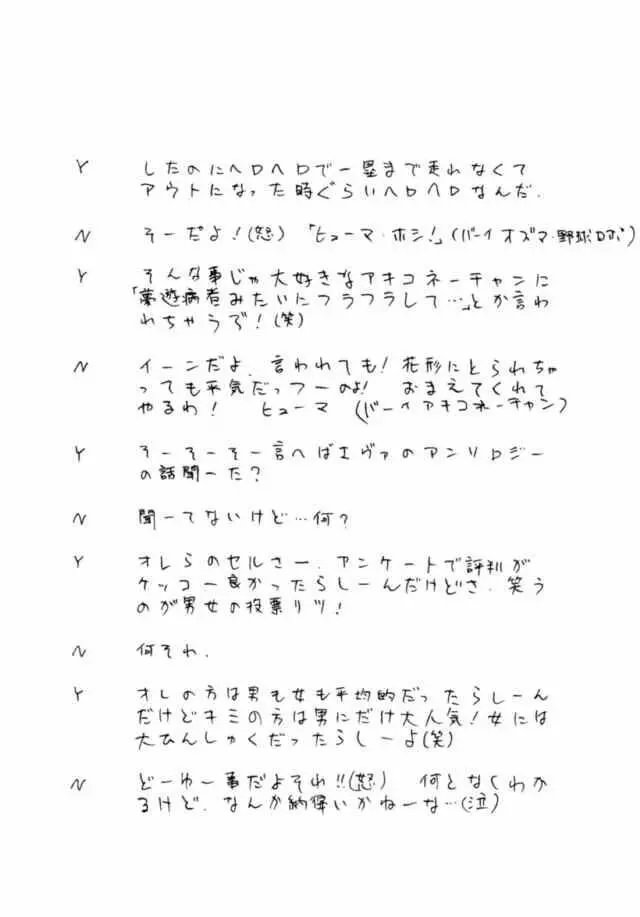 Y したのにヘロヘロで一塁まで走れなくて
アウトになった時ぐらいヘロヘロなんだ.
N そーだよ!(怒) 「ヒューマ・ホシ!」(バーイ オズマ・野球ロボ)
Y そんな事じゃ大好きなアキコネーチャンに
「夢遊病者みたいにフラフラして…」とか言わ
れちゃうぞ!(笑)
N イーンだよ、言われても! 花形にとられちゃ
っても平気だっつーのよ! おまえてくれて
やるわ! ヒューマ (バーイ アキコネーチャン)
Y そーそーそー言へばエヴァのアンソロジー
の話聞ーた?
N 聞ーてないけど…何?
Y オレらのセルさー、アンケートで評判が
ケッコー良かったらしーんだけどさ、笑う
のが男女の投票リツ!
N 何それ.
Y オレの方は男も女も平均的だったらしーん
だけどキミの方は男にだけ大人気! 女には
大ひんしゅくだったらしーよ(笑)
N どーゆー事だよそれ!!(怒) 何となくわか
るけど、なんか納得いかねーな…(泣)